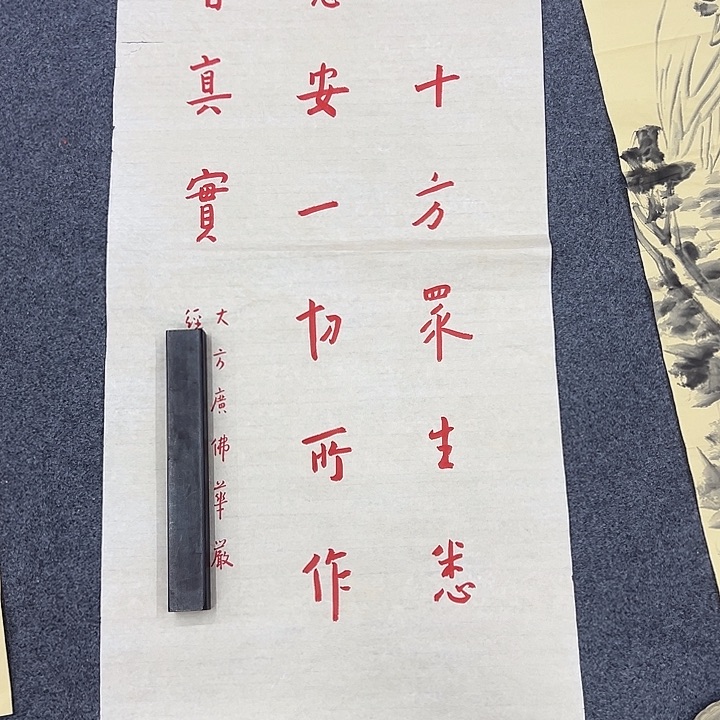 十方眾生悉
安一切所作
真實
大方廣佛華嚴
經